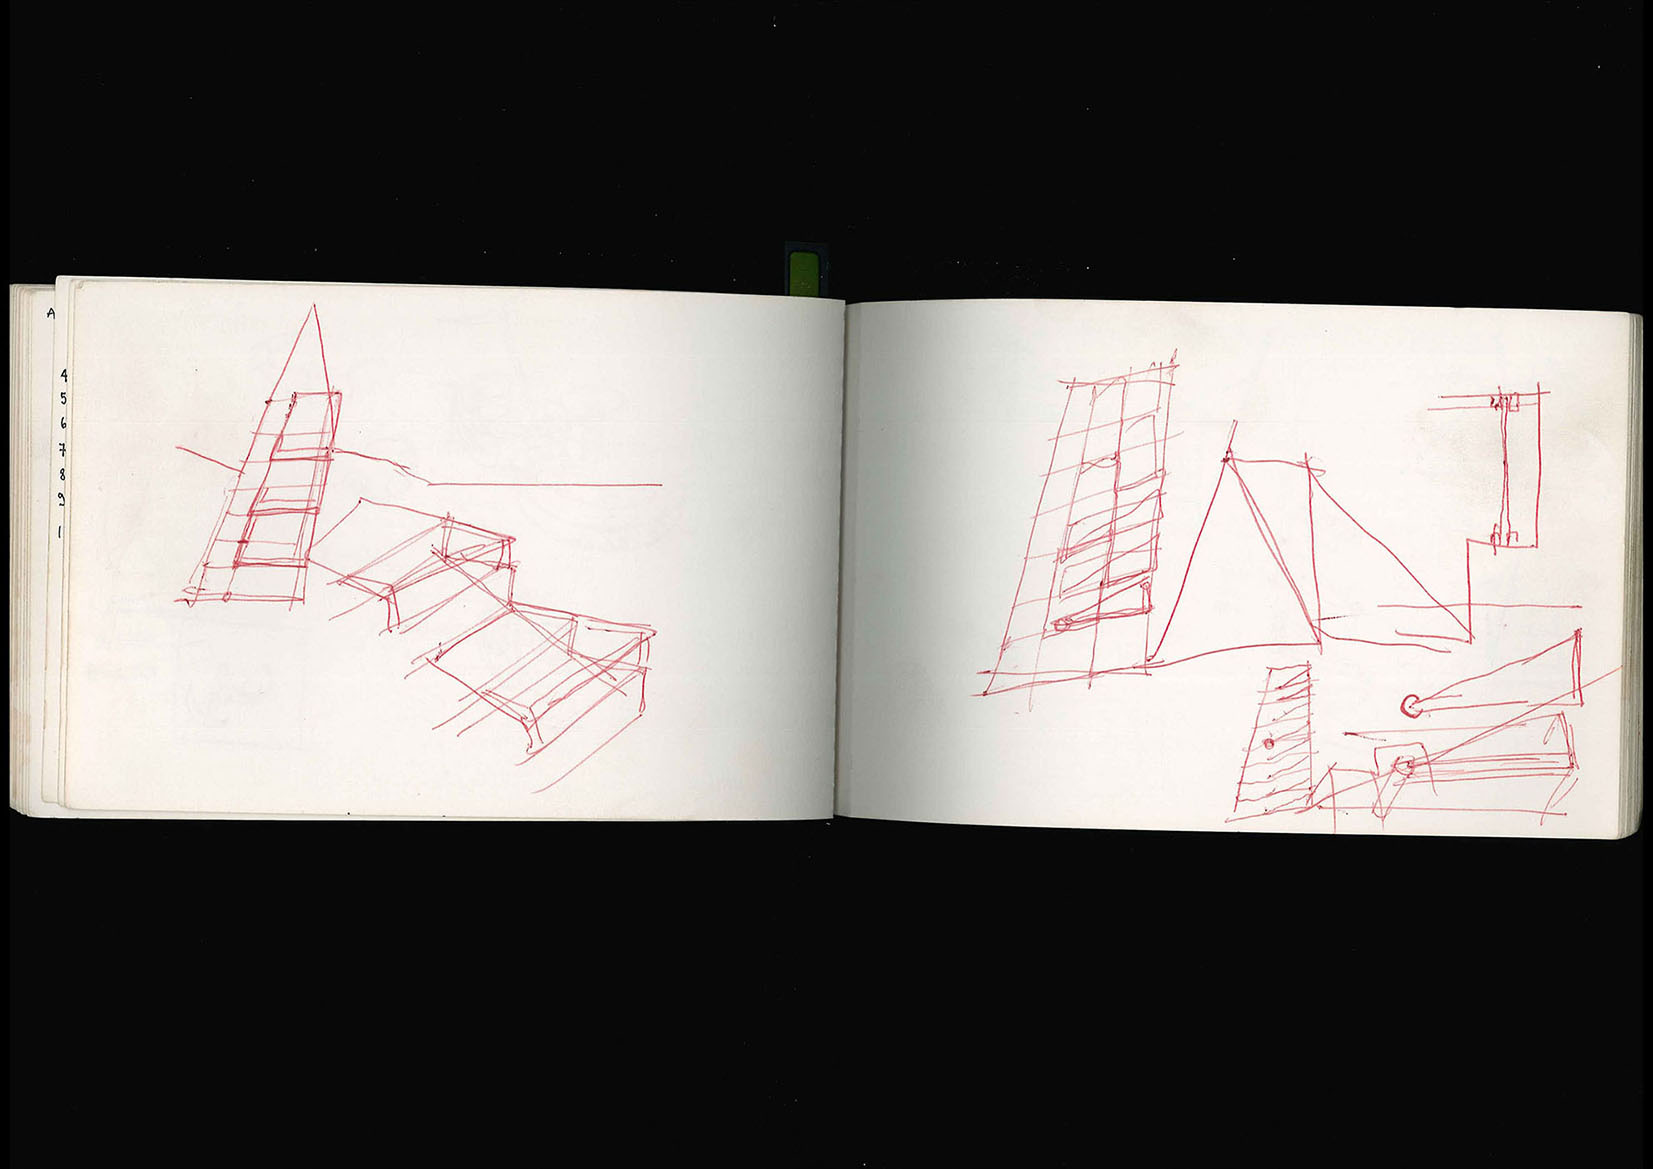 A
4
5
6
7
8
9
1